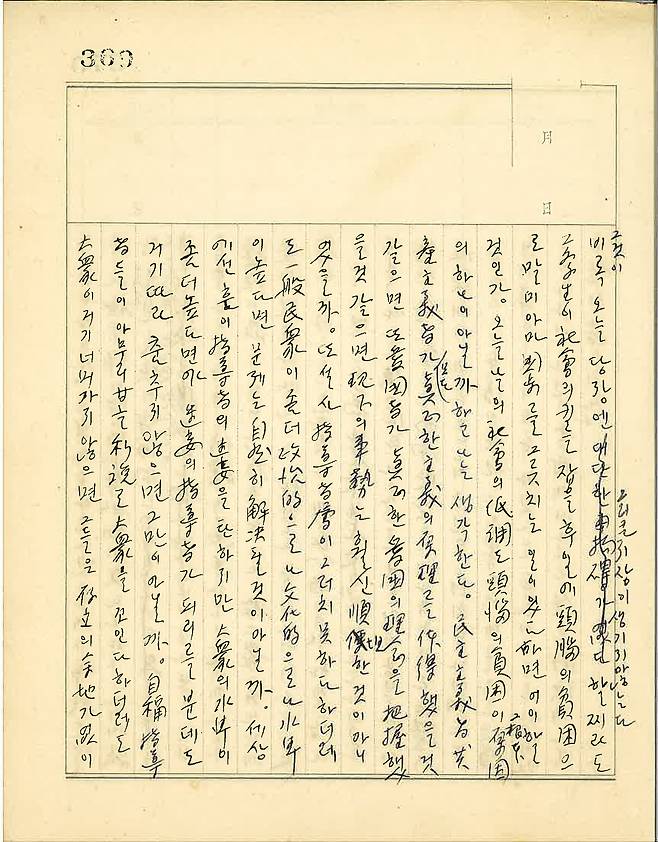 360
月
日
그것이
비록 오늘 당장엔 대단한 支障가 없다 할찌라도
그리 큰 지장이 생기지 않는다
그 학생이 社會의 키를 잡을 후일에 頭腦의 貧困으
로 말미아마 나라를 그르치는 일이 있다 하면 어이 할
것인가。 오늘날의 社會의 低調도 頭腦의 貧困이 原因
의 하나이 아닐까 하고 나는 생각한다。 民主主義者 共
産主義者가 眞正한 主義의 原理를 体得했을 것
같으면 또 愛國者가 眞正한 愛国의 理念을 把握했
을 것 같으면 現下의 事勢는 훨신 順坦한 것이 아니
었을까。 또 설사 指導者層이 그러치 못하다 하더래
도 一般民衆이 좀더 政治的으로나 文化的으로나 水準
이 높다면 문제는 自然히 解決될 것이 아닐까。 세상
에선 흔이 指導者의 迷妄을 탄하지만 大衆의 水準이
좀더 높다면야 迷妄의 指導者가 피리를 분데도
거기 따라 춤추지 않으면 그만이 아닐까。 自稱 指導
者들이 아무리 甘言利說로 大衆을 꼬인다 하더래도
大衆이 거기 너머가지 않으면 그들은 存立의 余地가 없이